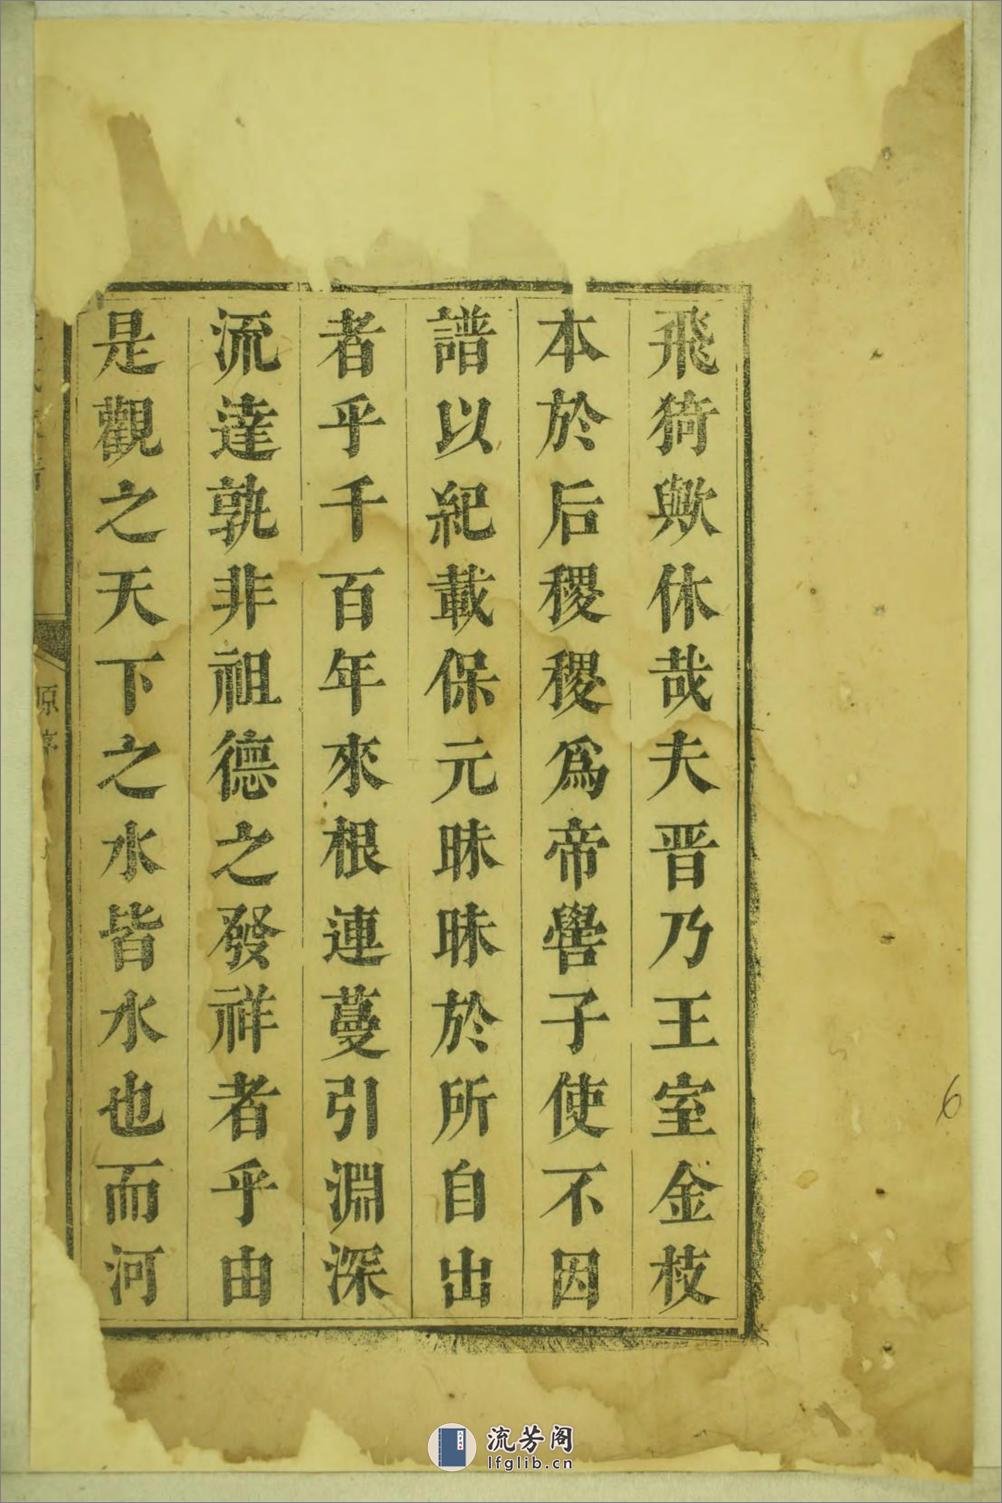 飛猗歟休哉夫晋乃王室金枝
本於后稷稷爲帝嚳子使不因
譜以紀載保元昧昧於所自出
者乎千百年來根連蔓引淵深
流達孰非祖德之發祥者乎由
是觀之天下之水皆水也而河
原序
6
流芳阁
lfglib.cn